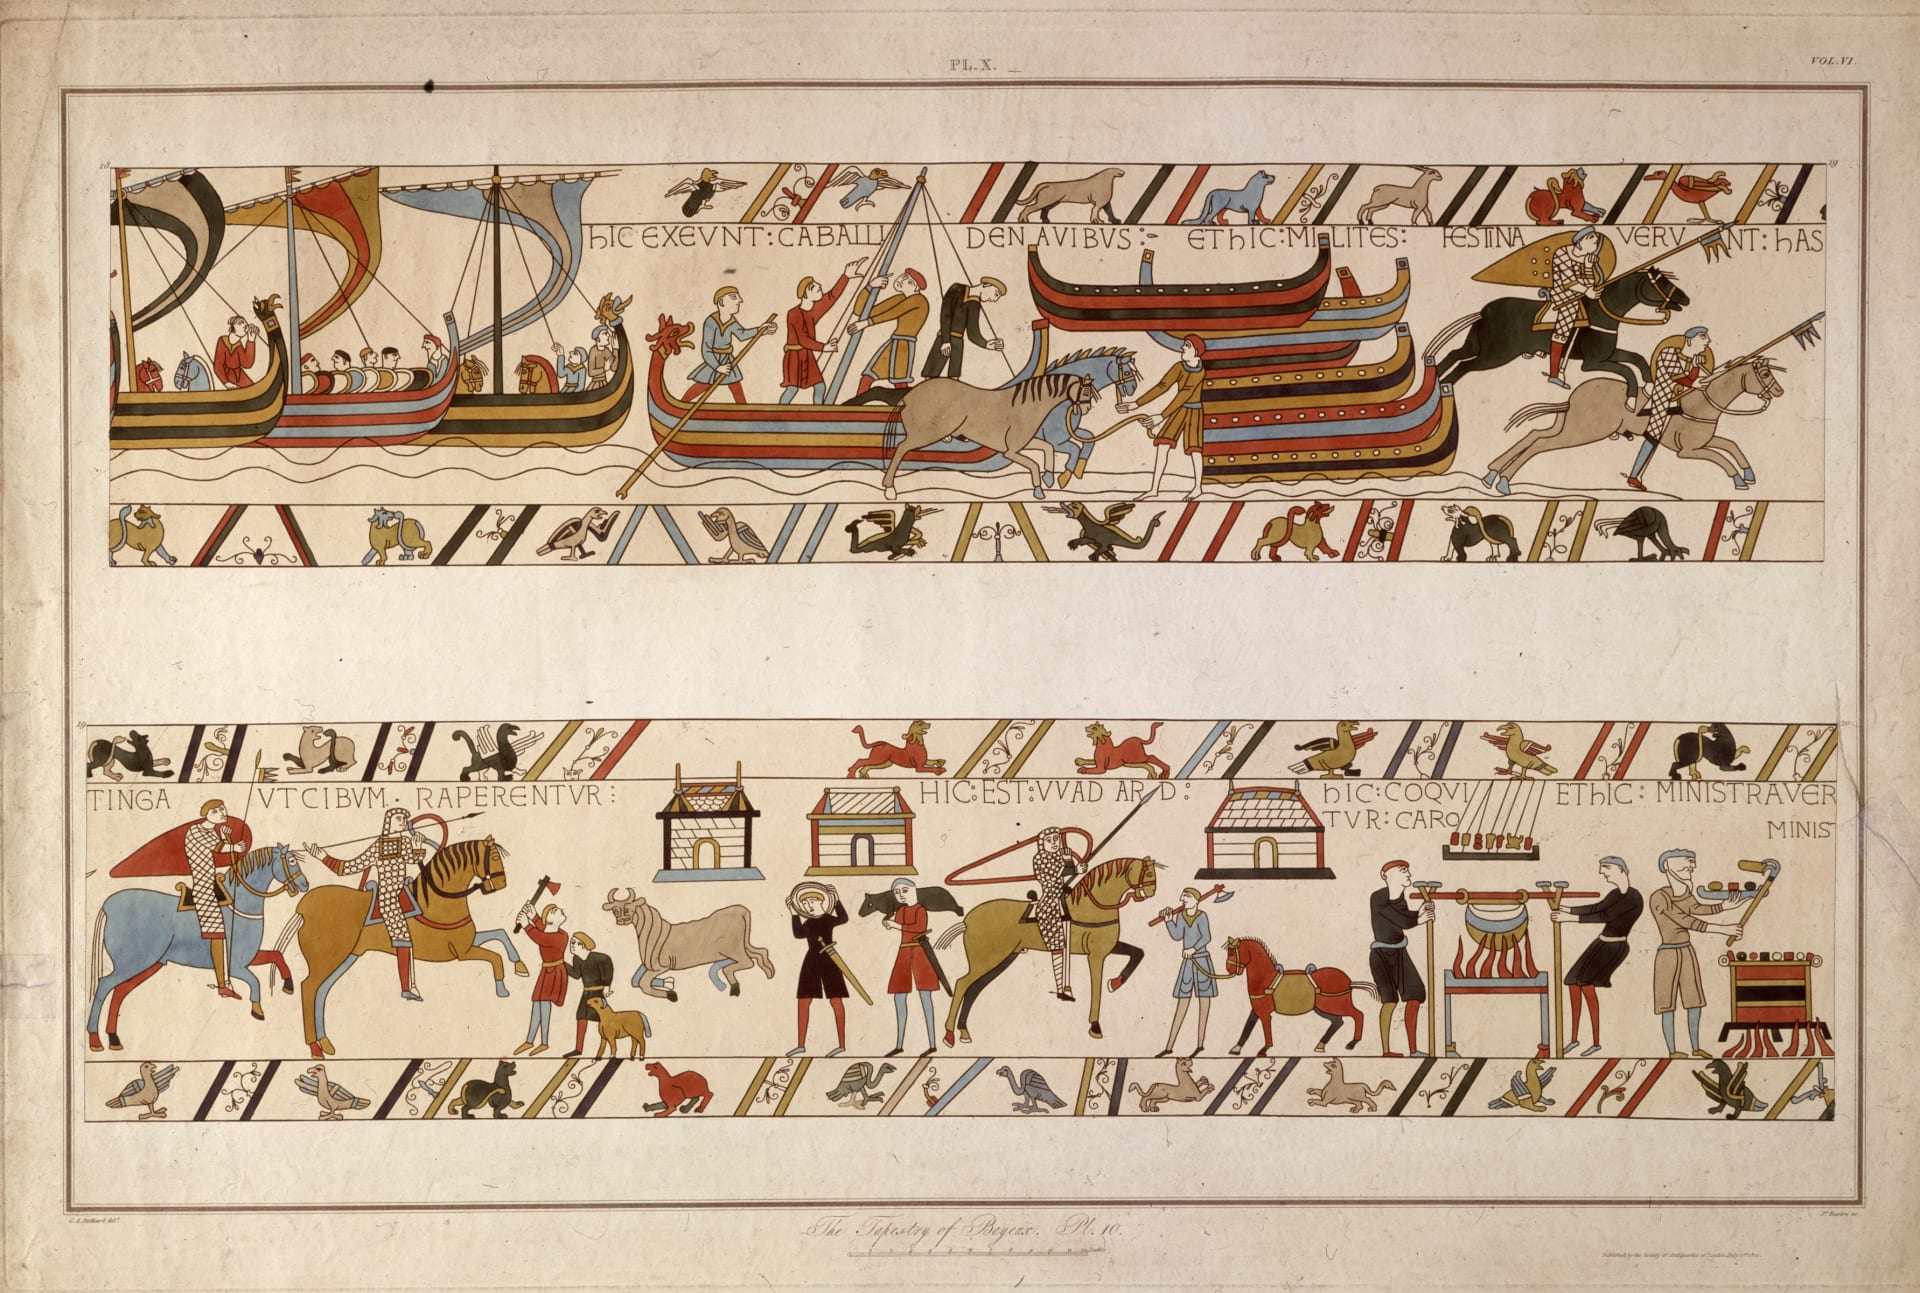 PL. X.
VOL. VI.
18
19
hIC EXEVNT : CABALLI DENAVIBVS :- EThIC : MILITES : FESTINA VERV NT : hAS
19
20
TINGA VT CIBVM . RAPERENTVR : HIC : EST : VVADARD : hIC : COQVI EThIC : MINISTRAVER
TVR : CARO MINIS
C. A. Stothard delt.
Js. Basire sc.
The Tapestry of Bayeux. Pl. 10.
Inches
Published by the Society of Antiquaries of London